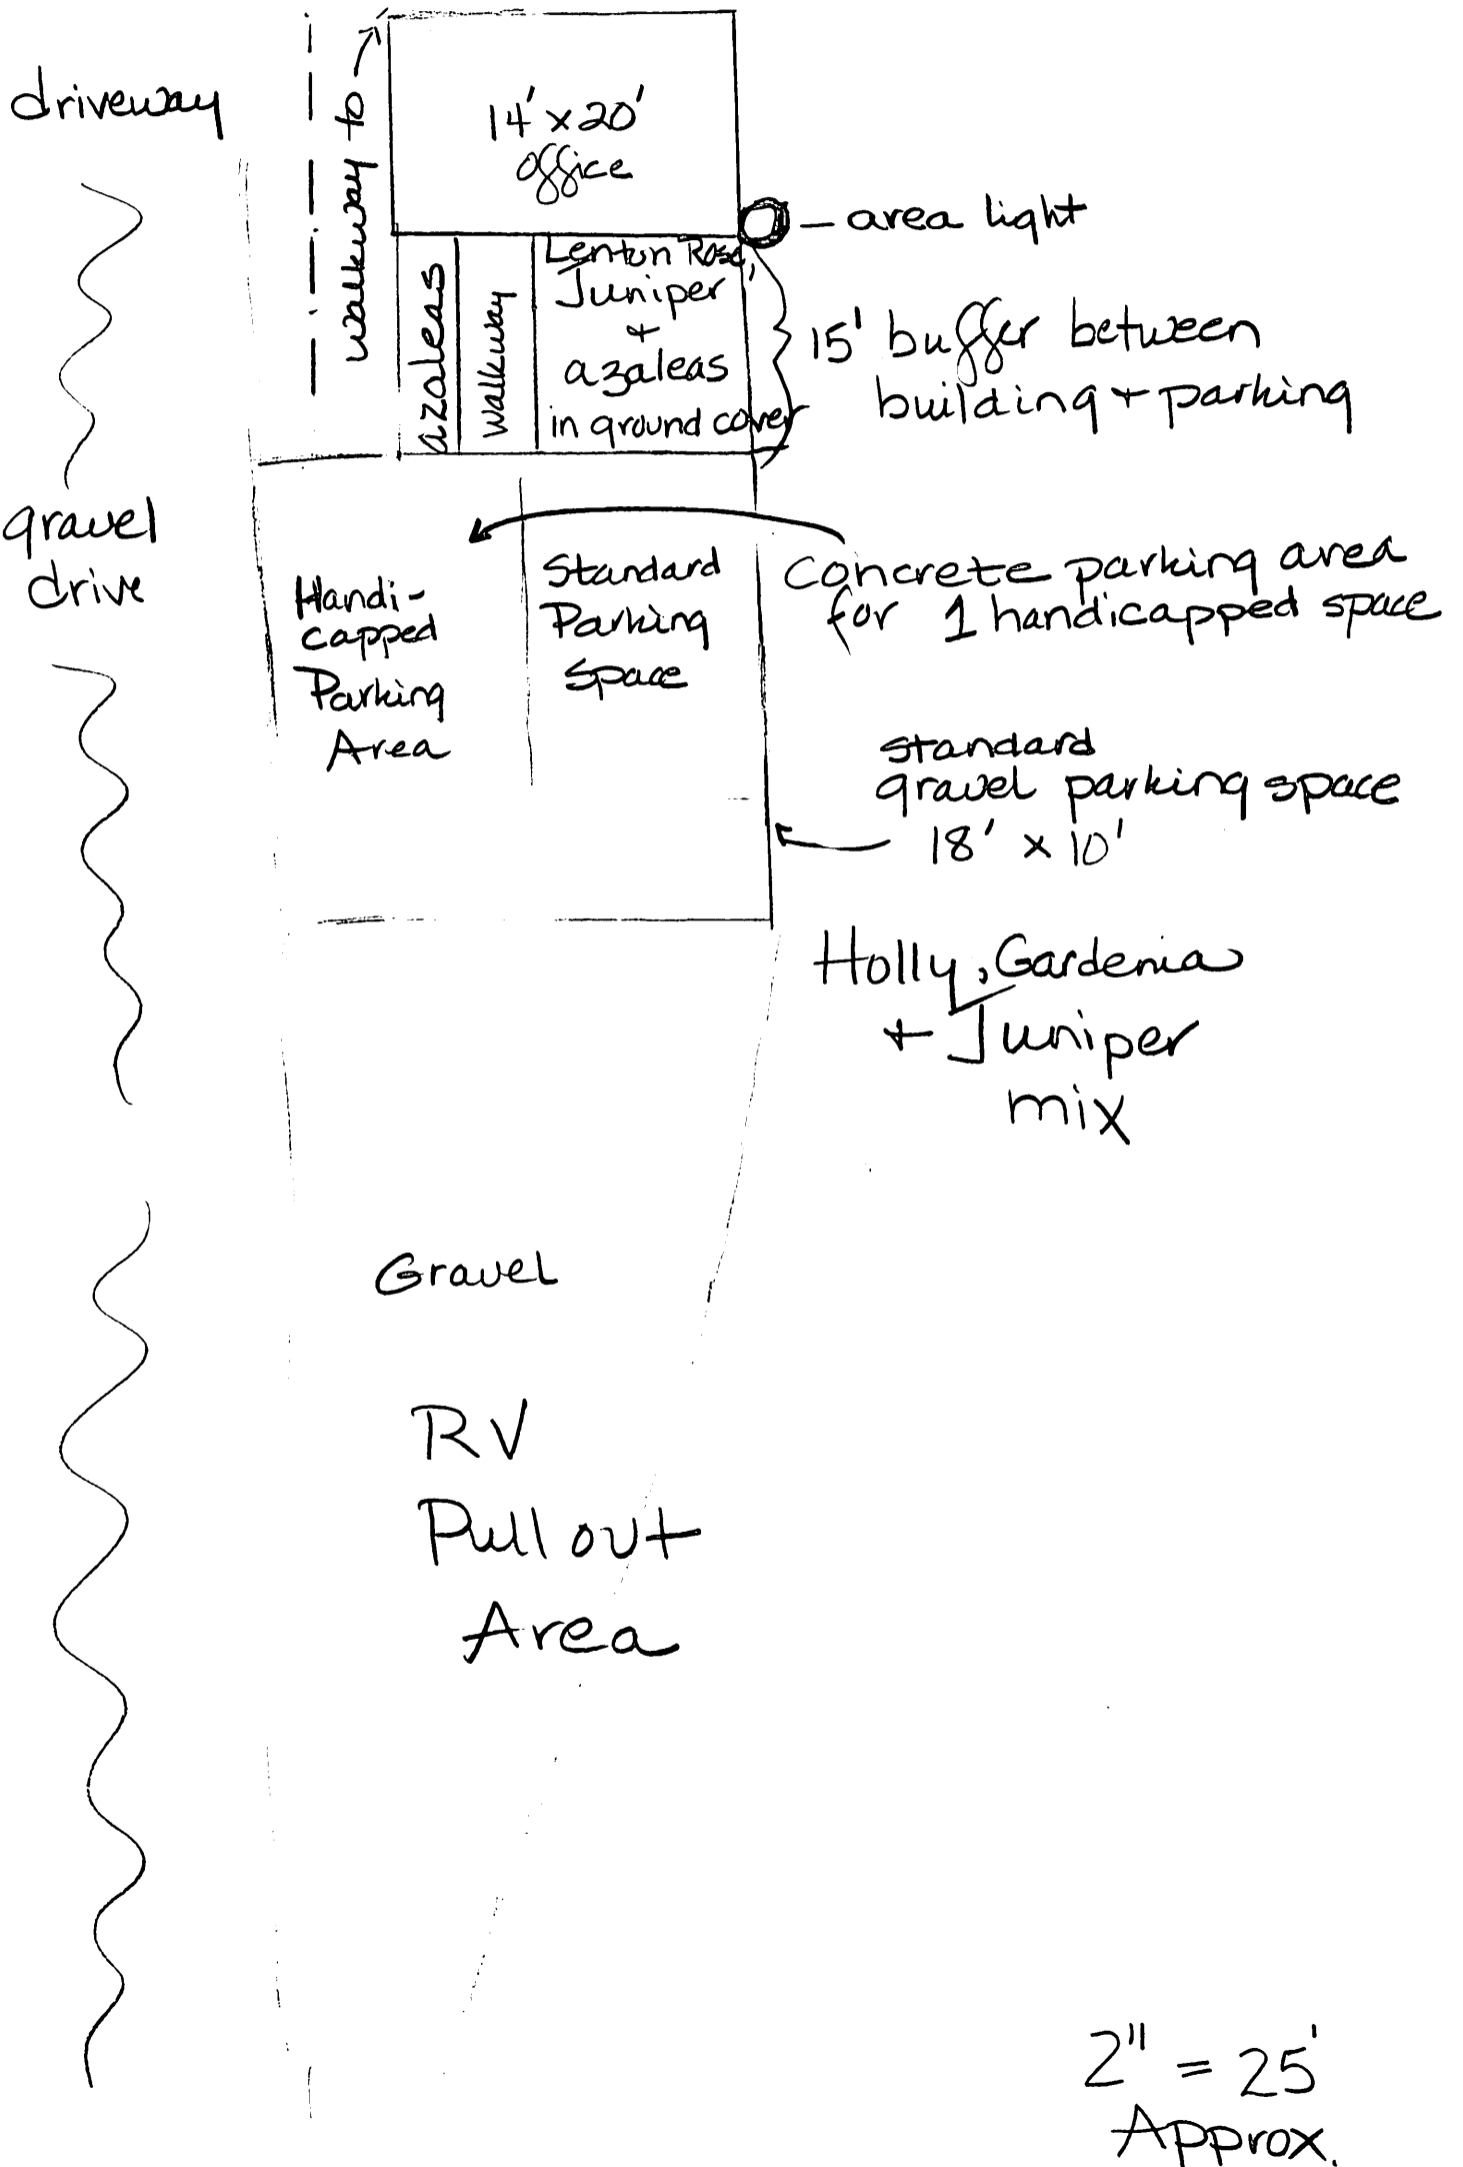 driveway
walkway to
14' x 20'
office
- area light
azaleas
walkway
Lentun Rose,
Juniper
+
azaleas
in ground cover
15' buffer between
building + parking
gravel
drive
Handi-
capped
Parking
Area
Standard
Parking
Space
Concrete parking area
for 1 handicapped space
standard
gravel parking space
18' x 10'
Holly, Gardenia
+ Juniper
mix
Gravel
RV
Pull out
Area
2" = 25'
Approx.